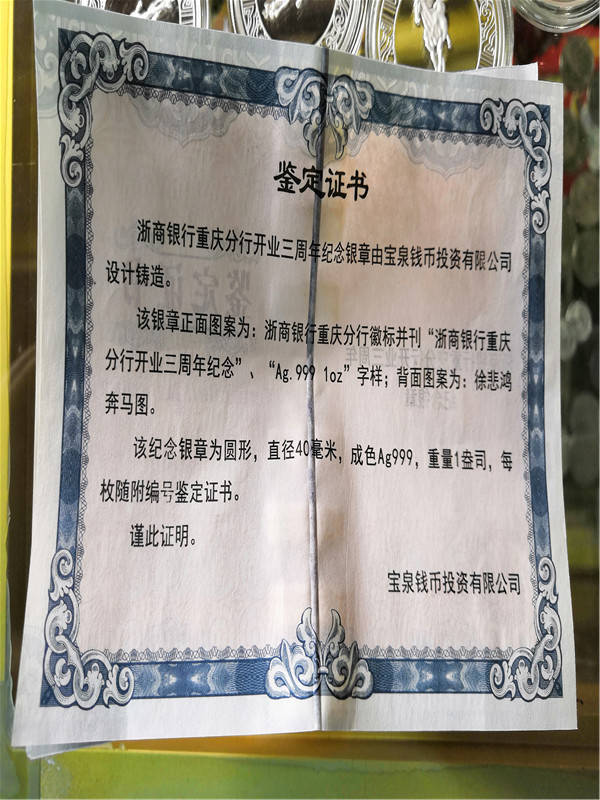 鉴定证书
浙商银行重庆分行开业三周年纪念银章由宝泉钱币投资有限公司
设计铸造。
该银章正面图案为：浙商银行重庆分行徽标并刊“浙商银行重庆
分行开业三周年纪念”、“Ag.999 1oz”字样；背面图案为：徐悲鸿
奔马图。
该纪念银章为圆形，直径40毫米，成色Ag999，重量1盎司，每
枚随附编号鉴定证书。
谨此证明。
宝泉钱币投资有限公司